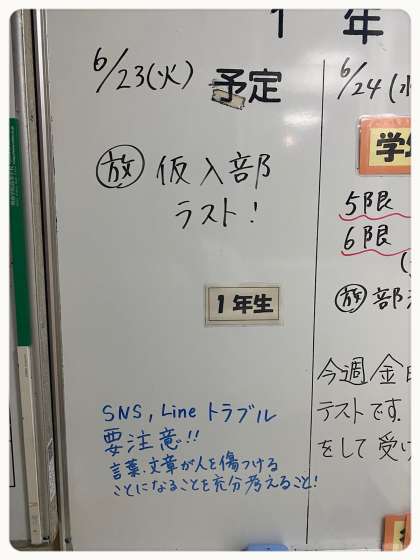 1 年
6/23(火) 予定
㊙放 仮入部
ラスト!
1年生
SNS, Line トラブル
要注意!!
言葉、文章が人を傷つける
ことになることを充分考えること!
6/24(水
学
5限
6限
放 部
今週金
テストです.
をして受